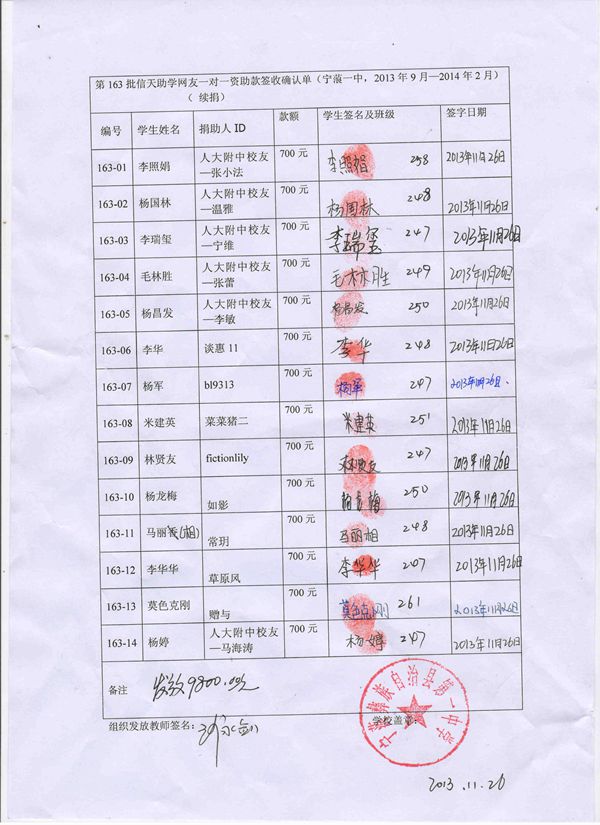 第 163 批信天助学网友一对一资助款签收确认单（宁蒗一中，2013 年 9 月—2014 年 2 月）
（ 续捐）
编号 学生姓名 捐助人 ID 款额 学生签名及班级 签字日期
163-01 李照娟 人大附中校友—张小法 700 元 李照娟 258 2013年11月26日
163-02 杨国林 人大附中校友—温雅 700 元 杨国林 248 2013年11月26日
163-03 李瑞玺 人大附中校友—宁维 700 元 李瑞玺 247 2013年11月26日
163-04 毛林胜 人大附中校友—张蕾 700 元 毛林胜 249 2013年11月26日
163-05 杨昌发 人大附中校友—李敏 700 元 杨昌发 250 2013年11月26日
163-06 李华 谈惠 11 700 元 李华 248 2013年11月26日
163-07 杨军 bl9313 700 元 杨军 247 2013年11月26日.
163-08 米建英 菜菜猪二 700 元 米建英 251 2013年11月26日
163-09 林贤友 fictionlily 700 元 林贤友 247 2013年11月26日
163-10 杨龙梅 如影 700 元 杨龙梅 250 2013年11月26日
163-11 马丽(相) 常玥 700 元 马丽相 248 2013年11月26日
163-12 李华华 草原风 700 元 李华华 207 2013年11月26日
163-13 莫色克刚 赠与 700 元 莫色克刚 261 2013年11月26日
163-14 杨婷 人大附中校友—马海涛 700 元 杨婷 247 2013年11月26日
备注 发放9800.00元
组织发放教师签名： 学校盖章：
宁蒗彝族自治县第一中学
2013.11.26